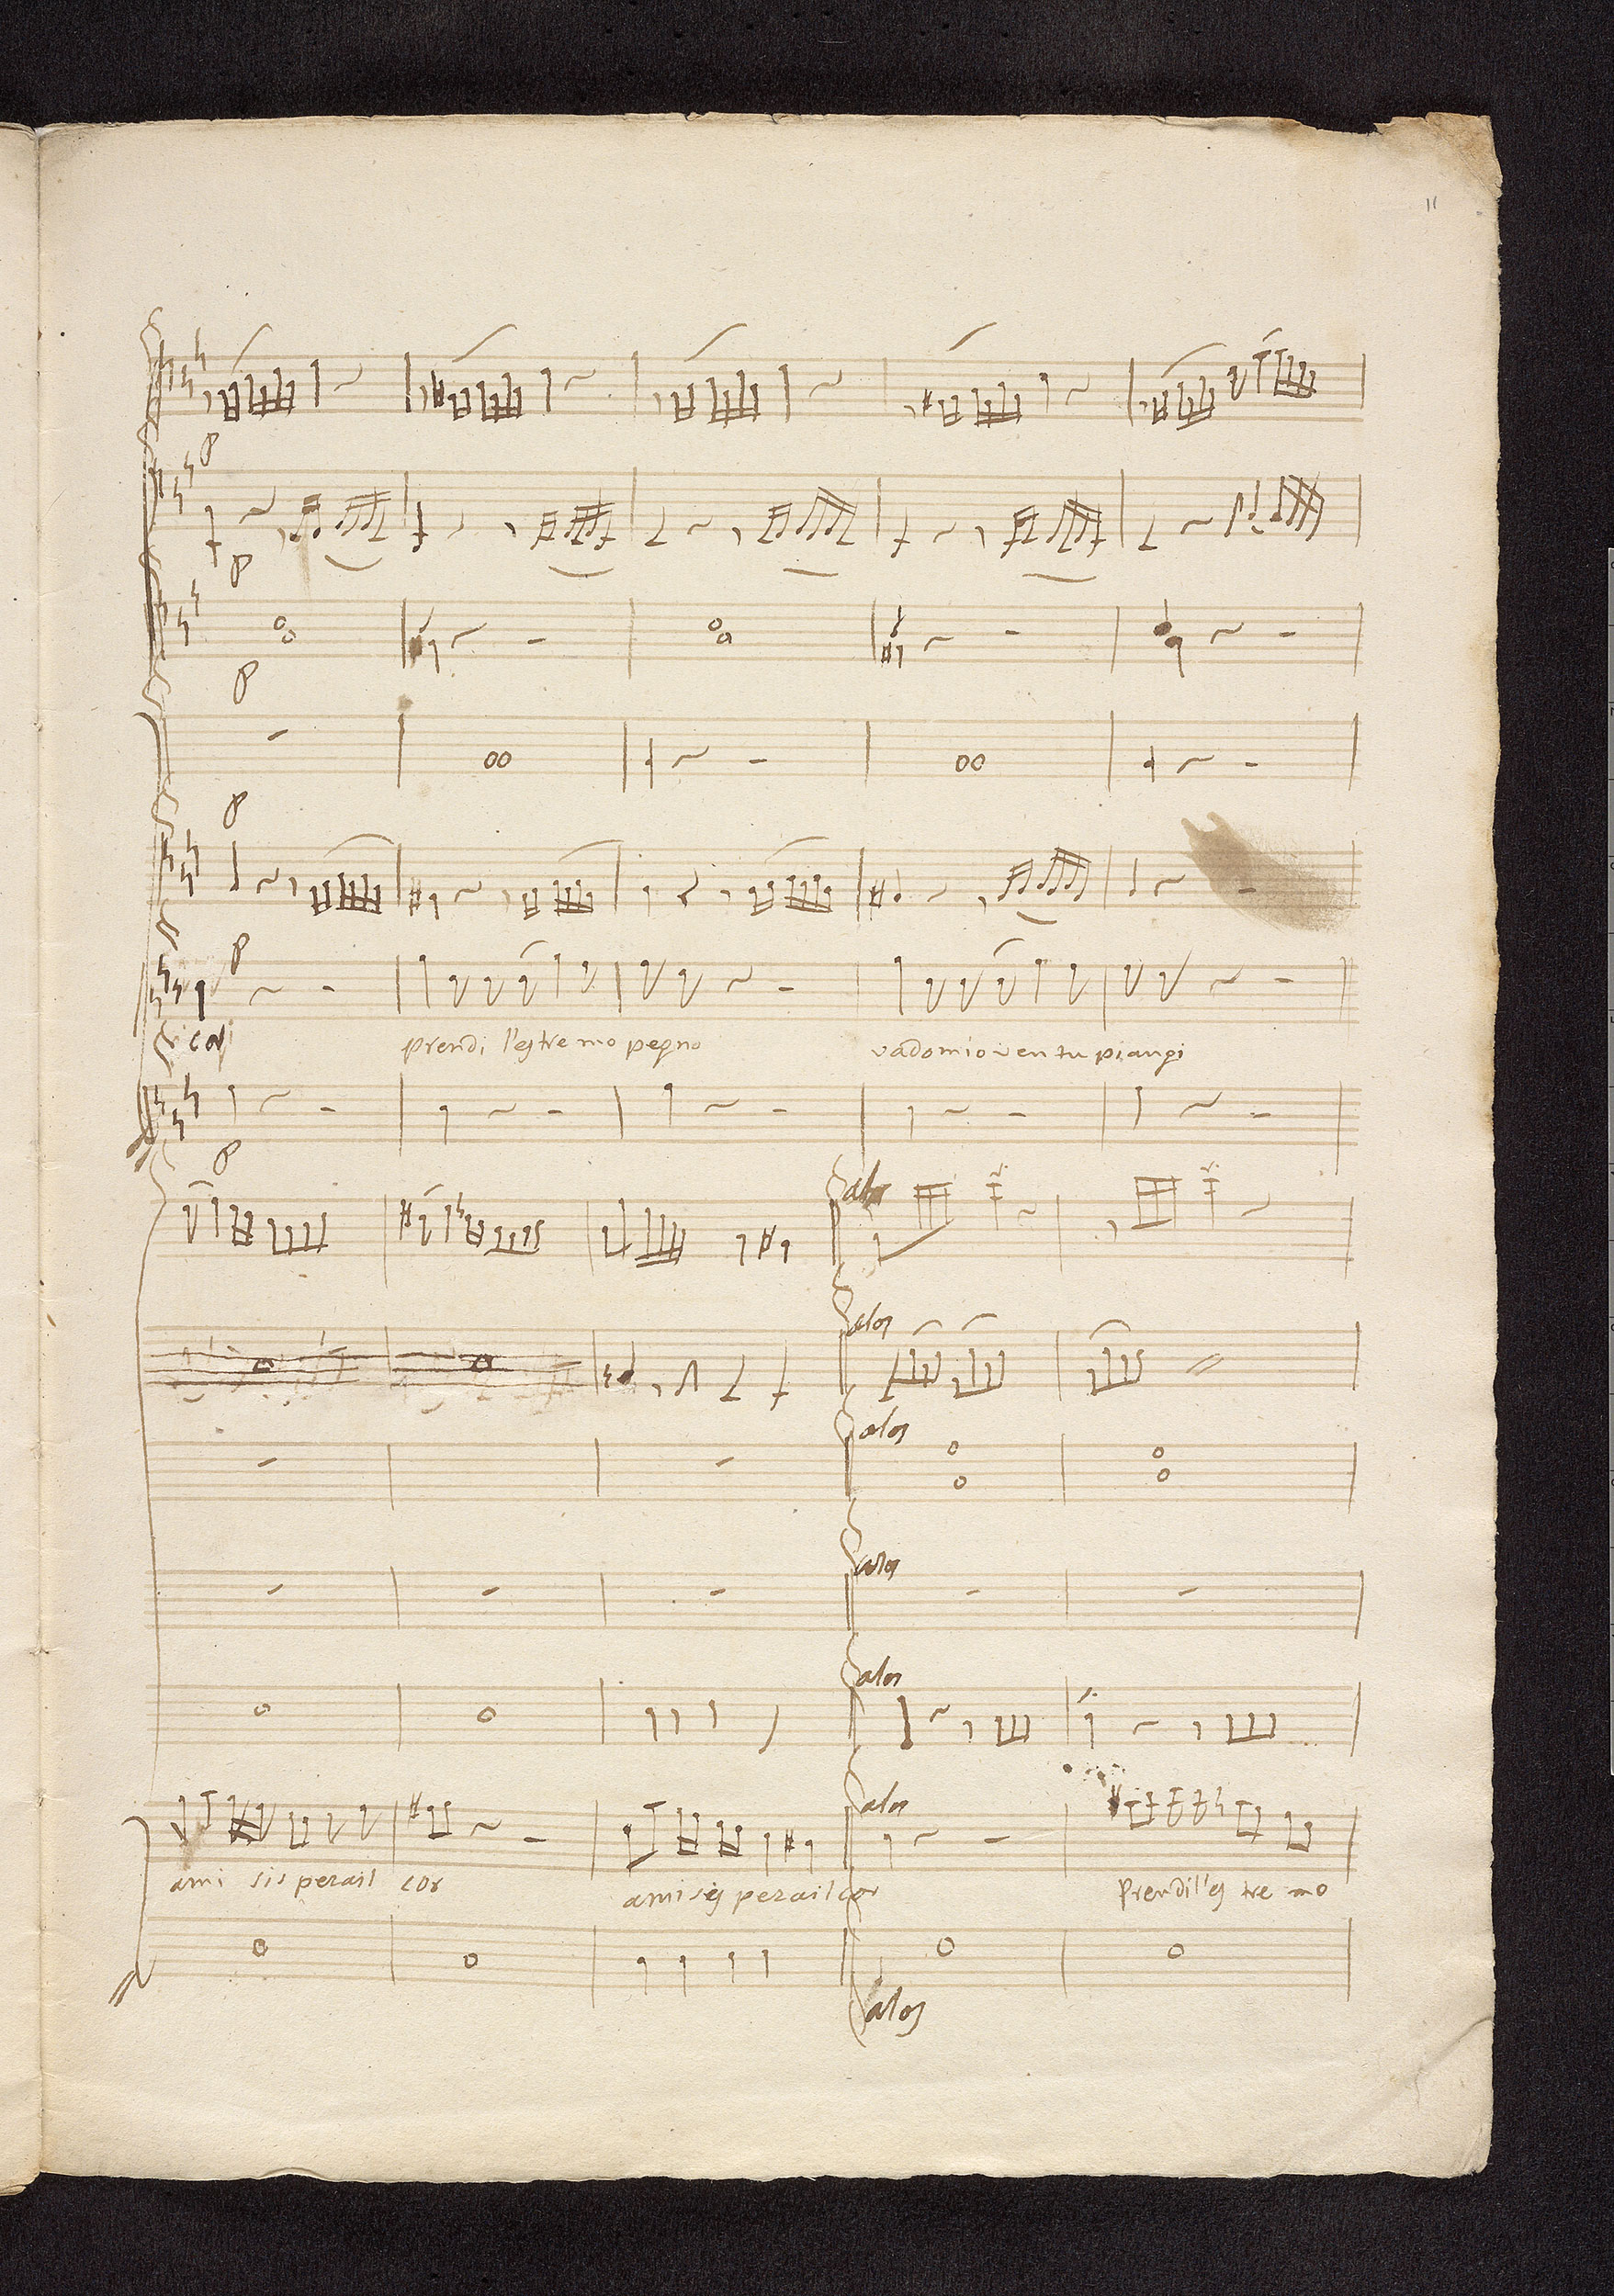 11
p
p
p
p
p
cor
prendi l'estremo pegno
vadomio ven tu piangi
p
alos
alos
alos
alos
alos
alos
ami sis perail cor
amisis perail cor
Prendil'es tre mo
alos